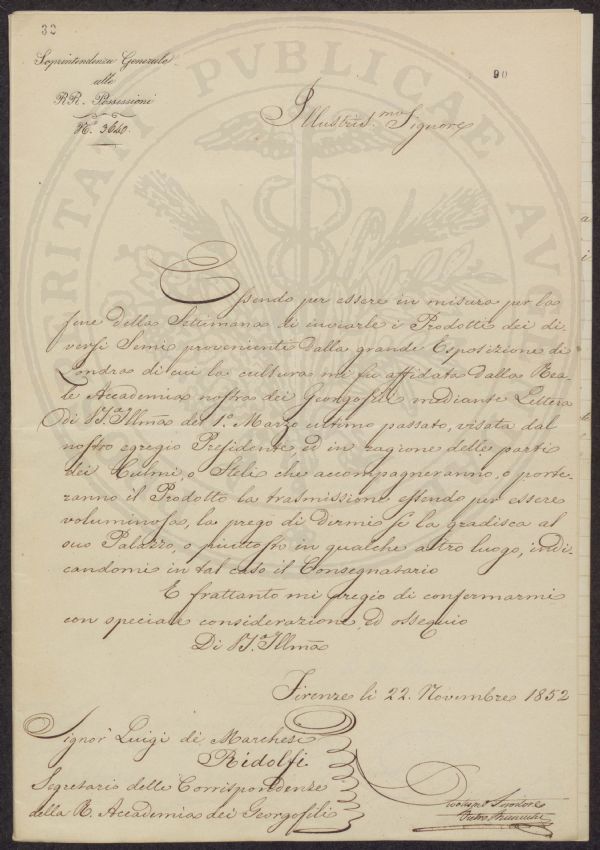 32
90
Soprintendenza Generale
alle
RR. Possessioni
N.º 3640.
Illustris.mo Signore
PVBLICAE
Essendo per essere in misura per la
fine della Settimana di inviarle i Prodotti dei di-
versi Semi provenienti dalla grande Esposizione di
Londra di cui la cultura mi fu affidata dalla Rea-
le Accademia nostra dei Georgofili mediante Lettera
di V.S.a Illma del 1.º Marzo ultimo passato, visata dal
nostro egregio Presidente, ed in ragione delle parti
dei Culmi, o Steli che accompagneranno, o porte-
ranno il Prodotto la trasmissione essendo per essere
voluminosa, la prego di dirmi se la gradisca al
suo Palazzo, o piuttosto in qualche altro luogo, indi-
candomi in tal caso il Consegnatario
E frattanto mi pregio di confermarmi
con speciale considerazione, ed ossequio
Di V.S.a Illma
Firenze li 22. Novembre 1852
Signor Luigi de' Marchesi
Ridolfi.
Segretario delle Corrispondenze
della R. Accademia dei Georgofili
Servitore
Pietro